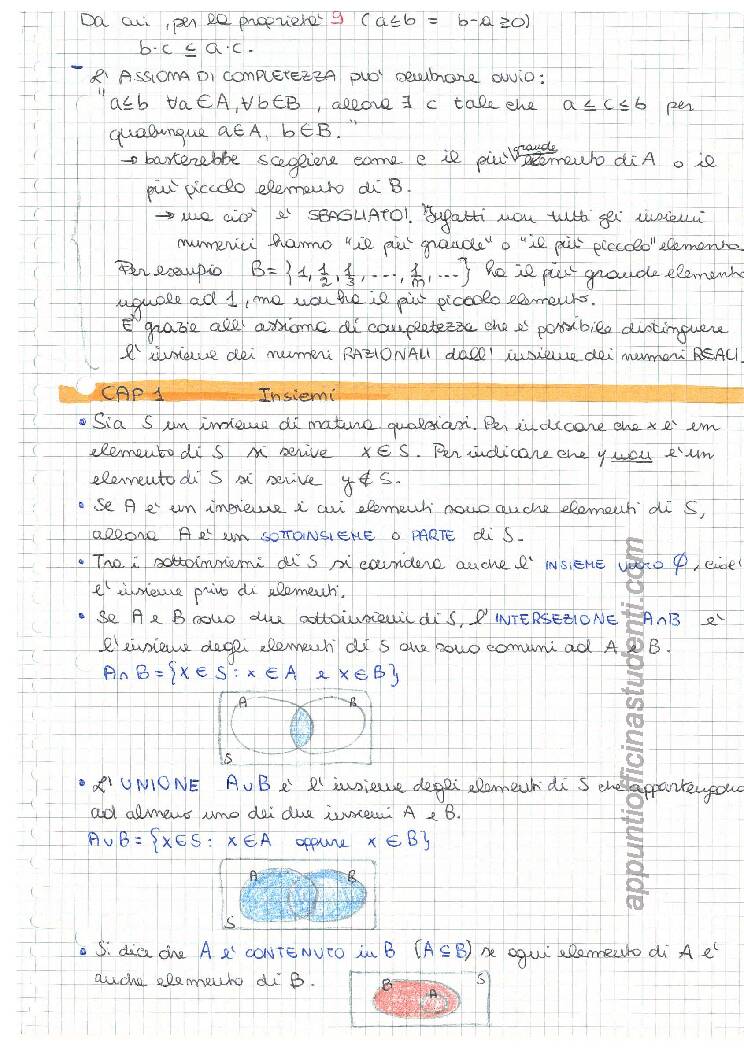 Da cui, per la proprietà 9 (a≤b = b-a≥0)
b·c ≤ a·c.
- L'ASSIOMA DI COMPLETEZZA può sembrare ovvio:
"a≤b ∀a∈A, ∀b∈B, allora ∃ c tale che a≤c≤b per
qualunque a∈A, b∈B."
→ basterebbe scegliere come c il più grande elemento di A o il
più piccolo elemento di B.
→ ma ciò è SBAGLIATO! Infatti non tutti gli insiemi
numerici hanno "il più grande" o "il più piccolo" elemento.
Per esempio B={1, 1/2, 1/3, ..., 1/m, ...} ha il più grande elemento
uguale ad 1, ma non ha il più piccolo elemento.
E' grazie all'assioma di completezza che è possibile distinguere
l'insieme dei numeri RAZIONALI dall'insieme dei numeri REALI.
CAP 1 Insiemi
• Sia S un insieme di natura qualsiasi. Per indicare che x è un
elemento di S si scrive x∈S. Per indicare che y non è un
elemento di S si scrive y∉S.
• Se A è un insieme i cui elementi sono anche elementi di S,
allora A è un SOTTOINSIEME o PARTE di S.
• Tra i sottoinsiemi di S si considera anche l'INSIEME VUOTO φ, cioè
l'insieme privo di elementi.
• Se A e B sono due sottoinsiemi di S, l'INTERSEZIONE A∩B è
l'insieme degli elementi di S che sono comuni ad A e B.
A∩B={x∈S: x∈A e x∈B}
A B
S
• L'UNIONE A∪B è l'insieme degli elementi di S che appartengono
ad almeno uno dei due insiemi A e B.
A∪B={x∈S: x∈A oppure x∈B}
A B
S
• Si dice che A è CONTENUTO in B (A⊆B) se ogni elemento di A è
anche elemento di B.
B A S
appuntiofficinastudenti.com